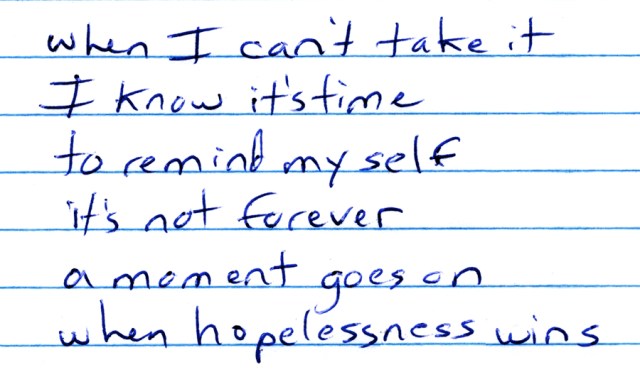 when I can't take it
I know it's time
to remind my self
it's not forever
a moment goes on
when hopelessness wins